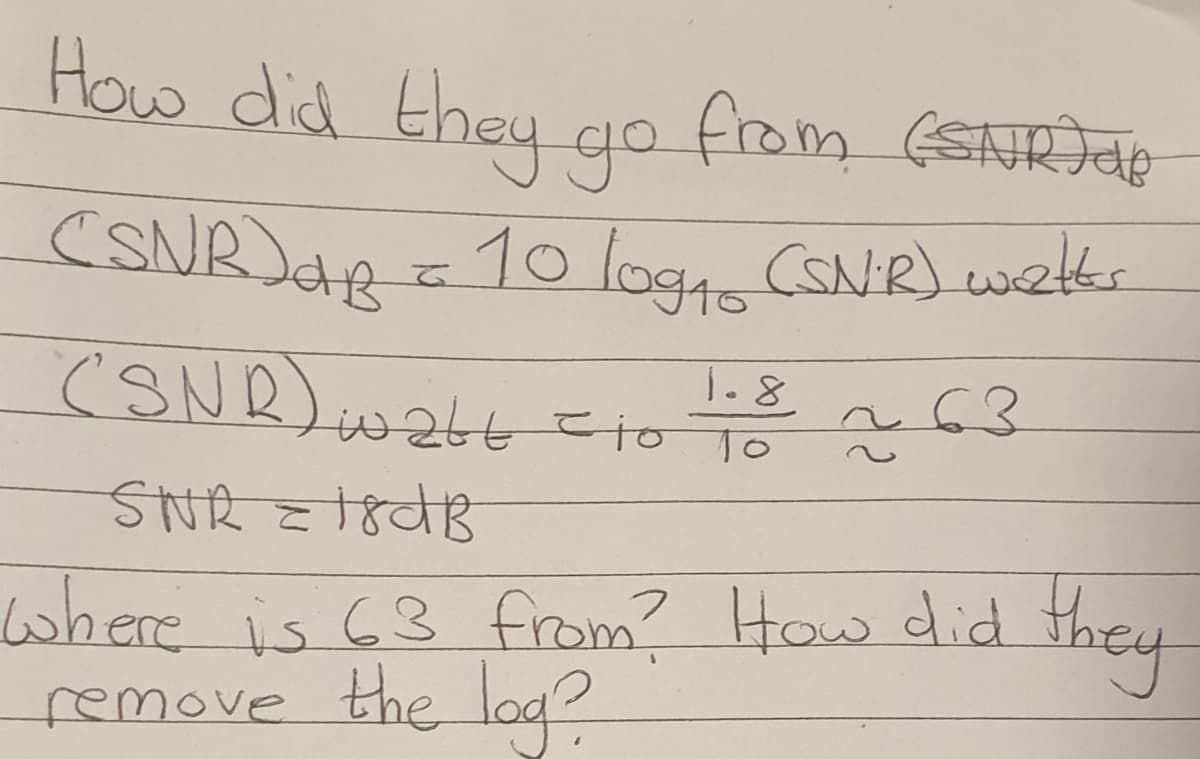 How did they go from (SNR)dB
(SNR)dB = 10 log10 (SN.R) watts
(SNR)watt = 10 1.8/10 ≈ 63
SNR = 18dB
where is 63 from? How did they
remove the log?